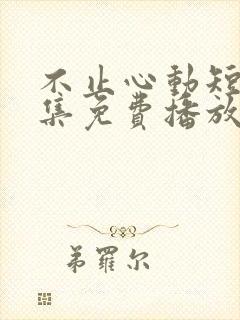 不止心動短
集免費播放
弟羅尔